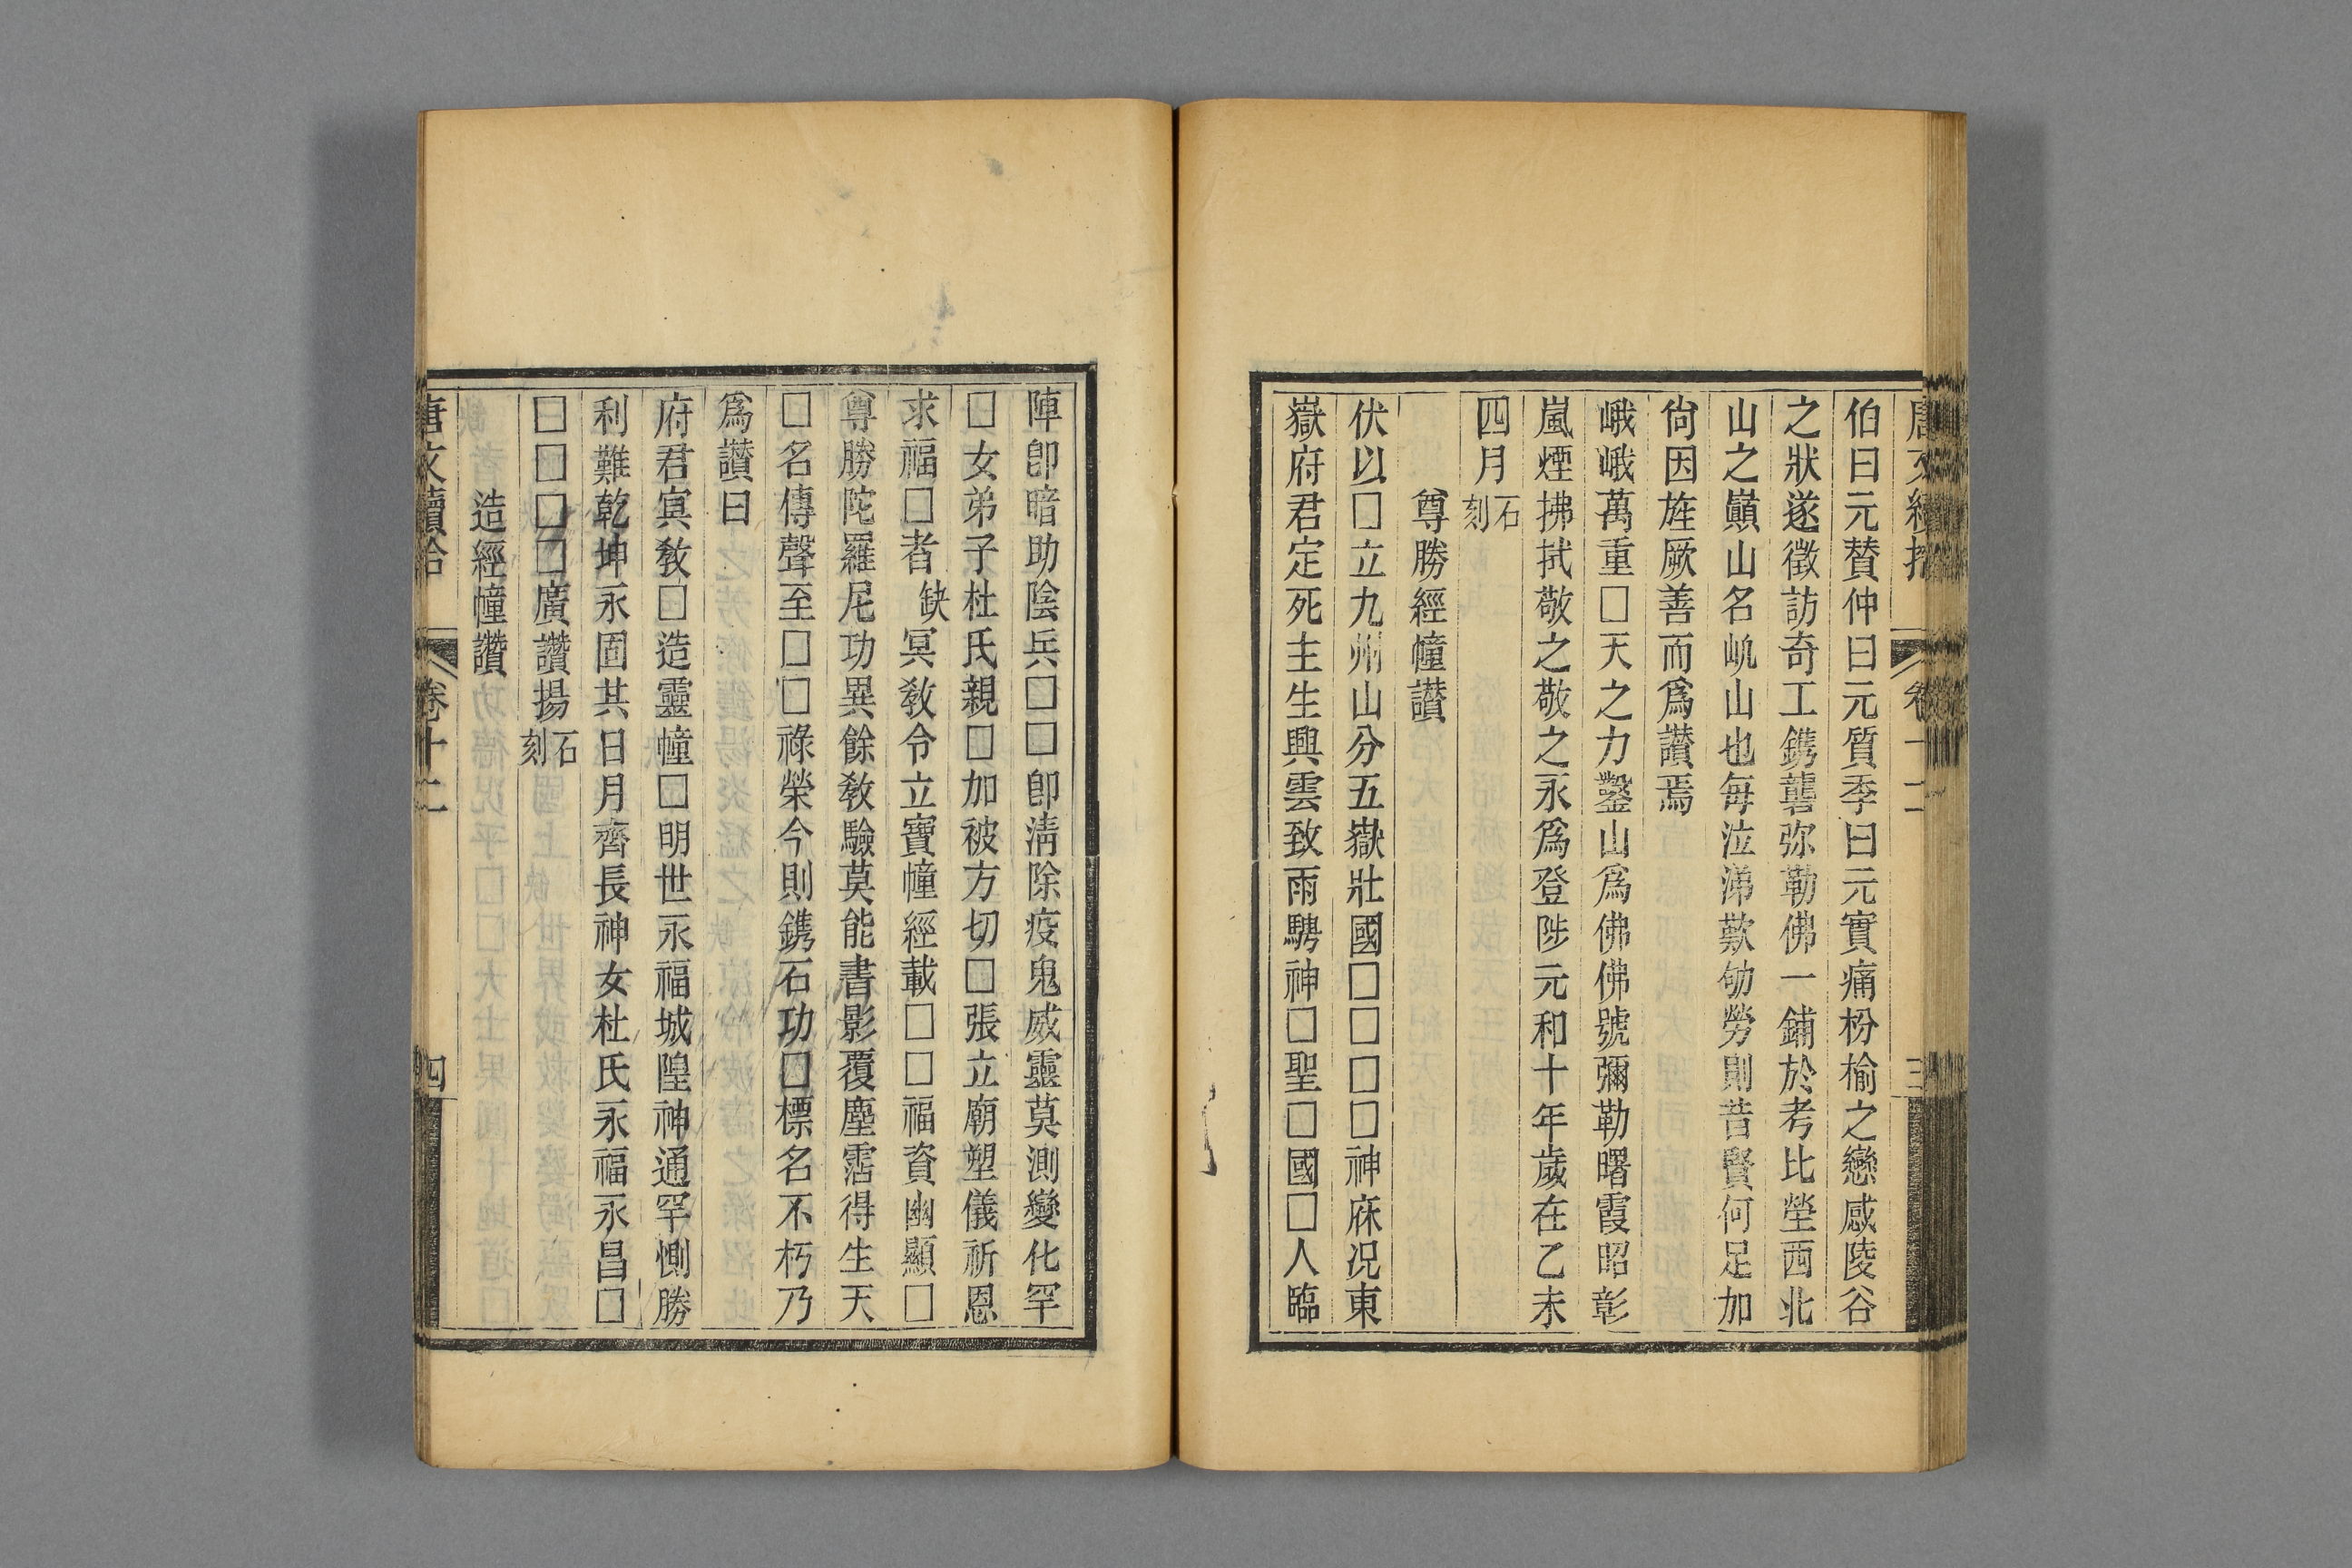 伯曰元贊仲曰元質季曰元實痛枌榆之戀感陵谷
之狀遂徵訪奇工鐫礱弥勒佛一鋪於考比塋西北
山之巔山名㞦山也每泣涕歎劬勞則昔賢何足加
尙因旌厥善而爲讃焉
峨峨萬重□天之力鑿山爲佛佛號彌勒曙霞昭彰
嵐煙拂拭敬之敬之永爲登陟元和十年歲在乙未
四月石刻
尊勝經幢讃
伏以□立九州山分五嶽壯國□□□□神庥况東
嶽府君定死主生興雲致雨騁神□聖□國□人臨
陣卽暗助陰兵□□卽淸除疫鬼威靈莫測變化罕
□女弟子杜氏親□加被方切□張立廟塑儀祈恩
求福□者缺冥敎令立寶幢經載□□福資幽顯□
尊勝陀羅尼功異餘敎驗莫能書影覆塵霑得生天
□名傳聲至□□祿榮今則鐫石功□標名不朽乃
爲讃曰
府君冥敎□造靈幢□明世永福城隍神通罕惻勝
利難乾坤永固其日月齊長神女杜氏永福永昌□
□□□□廣讃揚石刻
造經幢讃
唐文續拾 卷十二 四